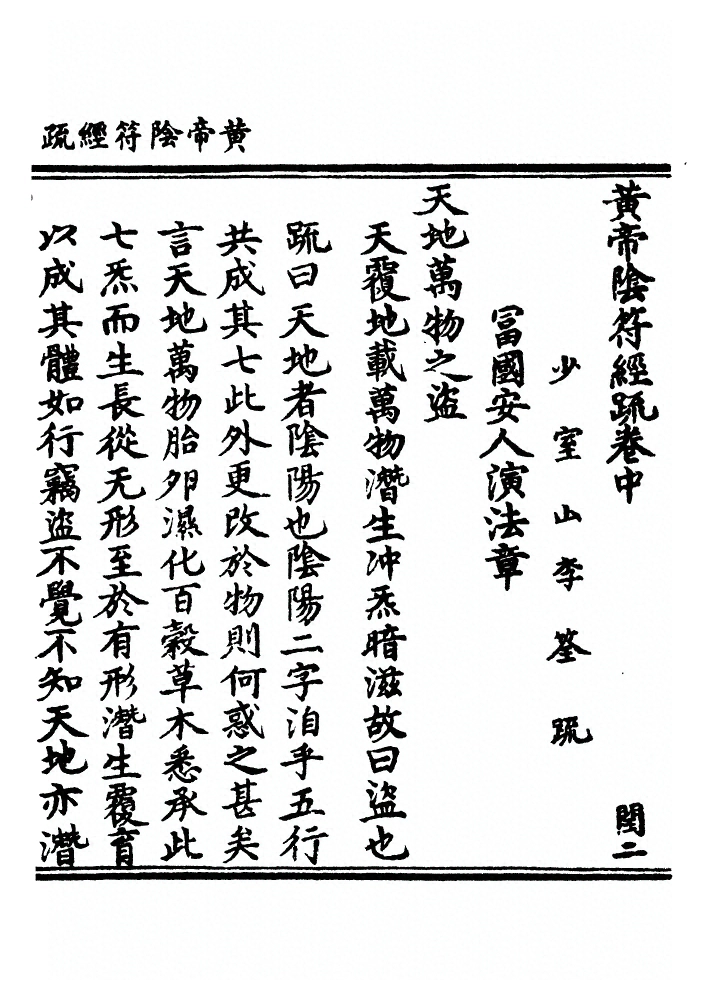 黄帝陰符經疏
黄帝陰符經疏卷中 閏二
少室山李筌疏
冨國安人演法章
天地萬物之盗
天覆地載萬物潛生冲炁暗滋故曰盗也
疏曰天地者陰陽也陰陽二字洎乎五行
共成其七此外更改於物則何惑之甚矣
言天地萬物胎卵濕化百穀草木悉承此
七炁而生長從无形至於有形潛生覆育
以成其體如行竊盗不覺不知天地亦潛